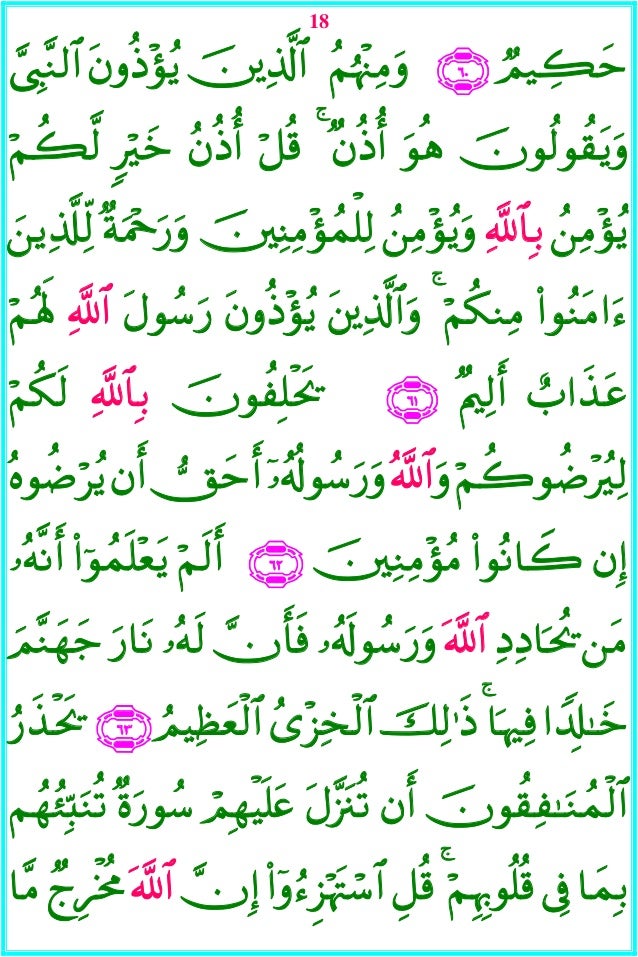 18
حَكِيمٌ ٦٠ وَمِنْهُمُ ٱلَّذِينَ يُؤْذُونَ ٱلنَّبِىَّ
وَيَقُولُونَ هُوَ أُذُنٌ ۚ قُلْ أُذُنُ خَيْرٍ لَّكُمْ
يُؤْمِنُ بِٱللَّهِ وَيُؤْمِنُ لِلْمُؤْمِنِينَ وَرَحْمَةٌ لِّلَّذِينَ
ءَامَنُوا۟ مِنكُمْ ۚ وَٱلَّذِينَ يُؤْذُونَ رَسُولَ ٱللَّهِ لَهُمْ
عَذَابٌ أَلِيمٌ ٦١ يَحْلِفُونَ بِٱللَّهِ لَكُمْ
لِيُرْضُوكُمْ وَٱللَّهُ وَرَسُولُهُۥٓ أَحَقُّ أَن يُرْضُوهُ
إِن كَانُوا۟ مُؤْمِنِينَ ٦٢ أَلَمْ يَعْلَمُوٓا۟ أَنَّهُۥ
مَن يُحَادِدِ ٱللَّهَ وَرَسُولَهُۥ فَأَنَّ لَهُۥ نَارَ جَهَنَّمَ
خَـٰلِدًا فِيهَا ۚ ذَٰلِكَ ٱلْخِزْىُ ٱلْعَظِيمُ ٦٣ يَحْذَرُ
ٱلْمُنَـٰفِقُونَ أَن تُنَزَّلَ عَلَيْهِمْ سُورَةٌ تُنَبِّئُهُم
بِمَا فِى قُلُوبِهِمْ ۚ قُلِ ٱسْتَهْزِءُوٓا۟ إِنَّ ٱللَّهَ مُخْرِجٌ مَّا